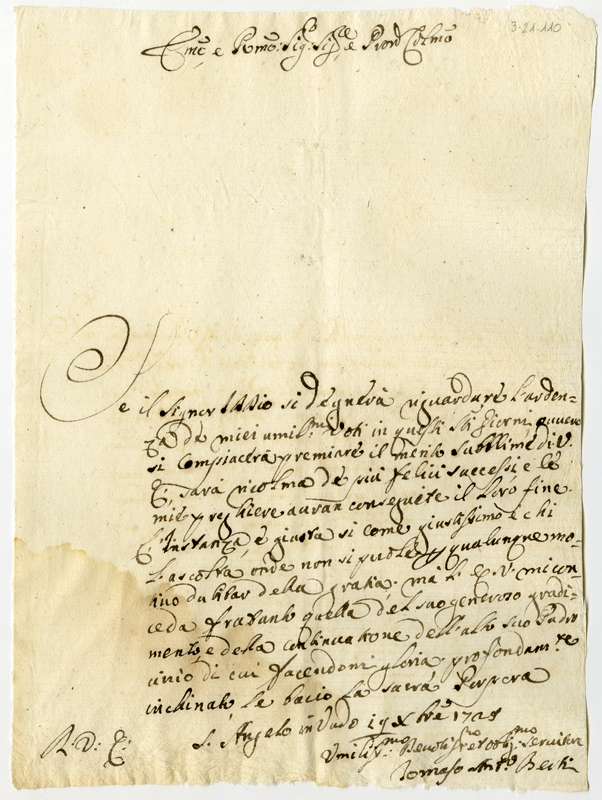 3-21-110
Em̃o e Rmo: Sig.r Sig.re e Pron̄ Colmo
Se il Signor Iddio si degnerà riguardare l'arden=
za de miei umil.mi Voti in questi Sti giorni, ovvero
si compiacerà premiare il merito sublime di V.
E., sarà ricolma de più felici successi, e le
mie preghiere avran conseguite il loro fine.
L'instanza è giusta si come giustissimo è chi
l'ascolta, onde non si puole per qualunque mo-
tivo dubitar della grazia: ma l'E. V. mi con-
ceda frattanto quella del suo generoso gradi-
mento, e della continuatione dell'alto suo Padro
cinio di cui facendomi gloria profondam.te
inchinato le bacio la sacra Porpora
S. Angelo in Vado 19 Xbre 1728
Umiliss.mo Devotiss.mo et obbl.mo Servitore
Tomaso Ant.o
R. D: E: